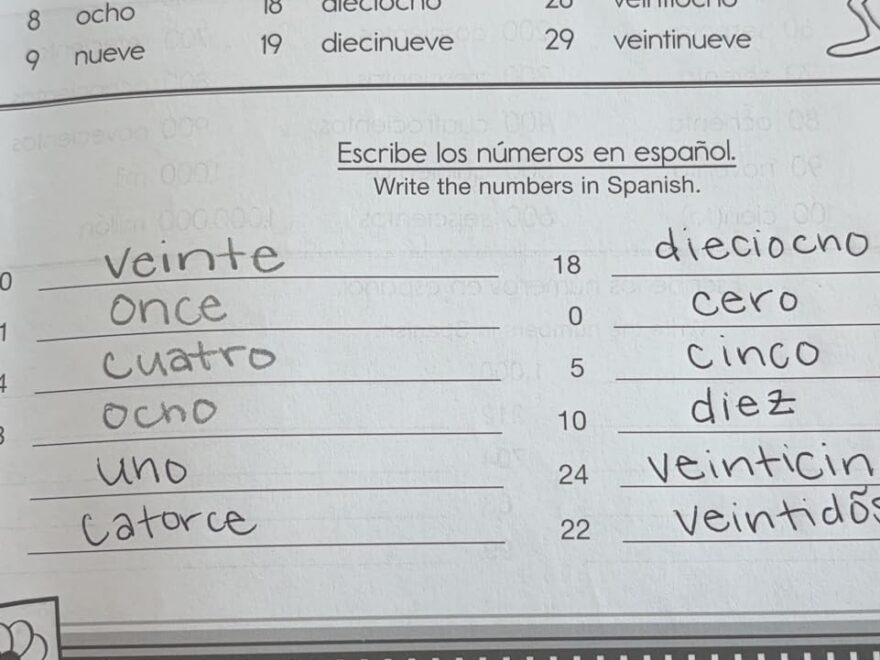 8 ocho 18 dieciocho 28 veintiocho
9 nueve 19 diecinueve 29 veintinueve
Escribe los números en español.
Write the numbers in Spanish.
0 veinte 18 dieciocno
1 once 0 cero
4 cuatro 5 cinco
8 ocno 10 diez
uno 24 veinticin
catorce 22 veintidõs